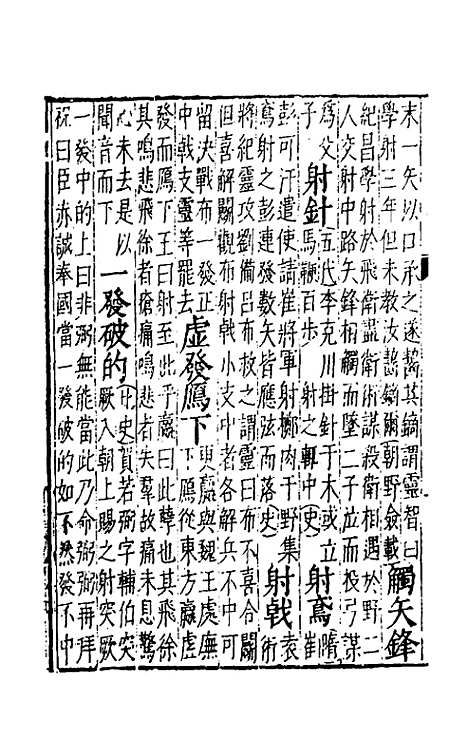 末一矢以口承之遂齧其鏑謂靈智曰
學射三年但未教汝齧鏃爾朝野僉載 觸矢鋒
紀昌學射於飛衛盡衛術謀殺衛相遇於野二
人交射中路矢鋒相觸而墜二子泣而投弓請
爲父子 射針 五代李克川掛針于木或立
馬鞭百步射之輒中史 射鳶 隋崔
彭可汗遣使請崔將軍射擲肉于野集
鳶射之彭連發數矢皆應弦而落史 射戟 袁術
將紀靈攻劉備呂布救之謂靈曰布不喜合鬭
但喜解鬭觀布射戟小支中者各解兵不中可
留決戰布一發正
中戟支靈等罷去 虛發鴈下 更羸與魏王處廡
下鴈從東方羸虛
發而鴈下王曰射至此乎羸曰此孽也其飛徐
其鳴悲飛徐者瘡痛鳴悲者失羣故痛未息驚
心未去是以
聞音而下 一發破的 北史賀若弼字輔伯突
厥入朝上賜之射突厥
一發中的上曰非弼無能當此乃命弼弼再拜
祝曰臣赤誠奉國當一發破的如不然發不中